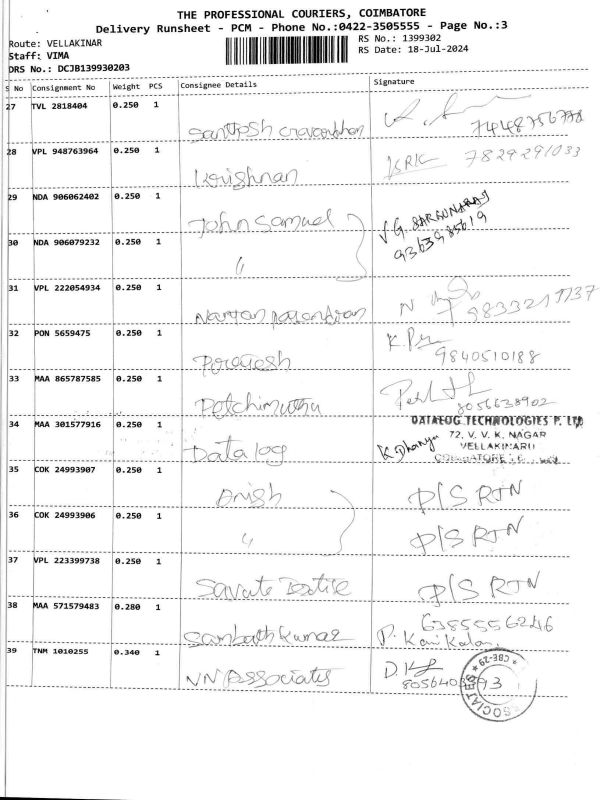 THE PROFESSIONAL COURIERS, COIMBATORE
Delivery Runsheet - PCM - Phone No.:0422-3505555 - Page No.:3
Route: VELLAKINAR
RS No.: 1399302
Staff: VIMA
RS Date: 18-Jul-2024
DRS No.: DCJB139930203
S No Consignment No Weight PCS Consignee Details Signature
27 TVL 2818404 0.250 1
Santhosh 7448756778
28 VPL 948763964 0.250 1
Krishnan KRK 7829291033
29 NDA 906062402 0.250 1
John Samuel V.G. SARAVNARAJ
9363985619
30 NDA 906079232 0.250 1
"
31 VPL 222054934 0.250 1
N
32 PON 5659475 0.250 1
9840510188
33 MAA 865787585 0.250 1
Petchimuthu 8056638902
34 MAA 301577916 0.250 1
Datalog K. Dhanya
DATALOG TECHNOLOGIES P. LTD
72, V. V. K. NAGAR
VELLAKINARU
COIMBATORE
35 COK 24993907 0.250 1
Anish P/S RTN
36 COK 24993906 0.250 1
" P/S RTN
37 VPL 223399738 0.250 1
P/S RTN
38 MAA 571579483 0.280 1
Sambath Kumar 6385556246
P. Kani Kalan
39 TNM 1010255 0.340 1
VN Associates D.K
80564 93
* CBE-29 *